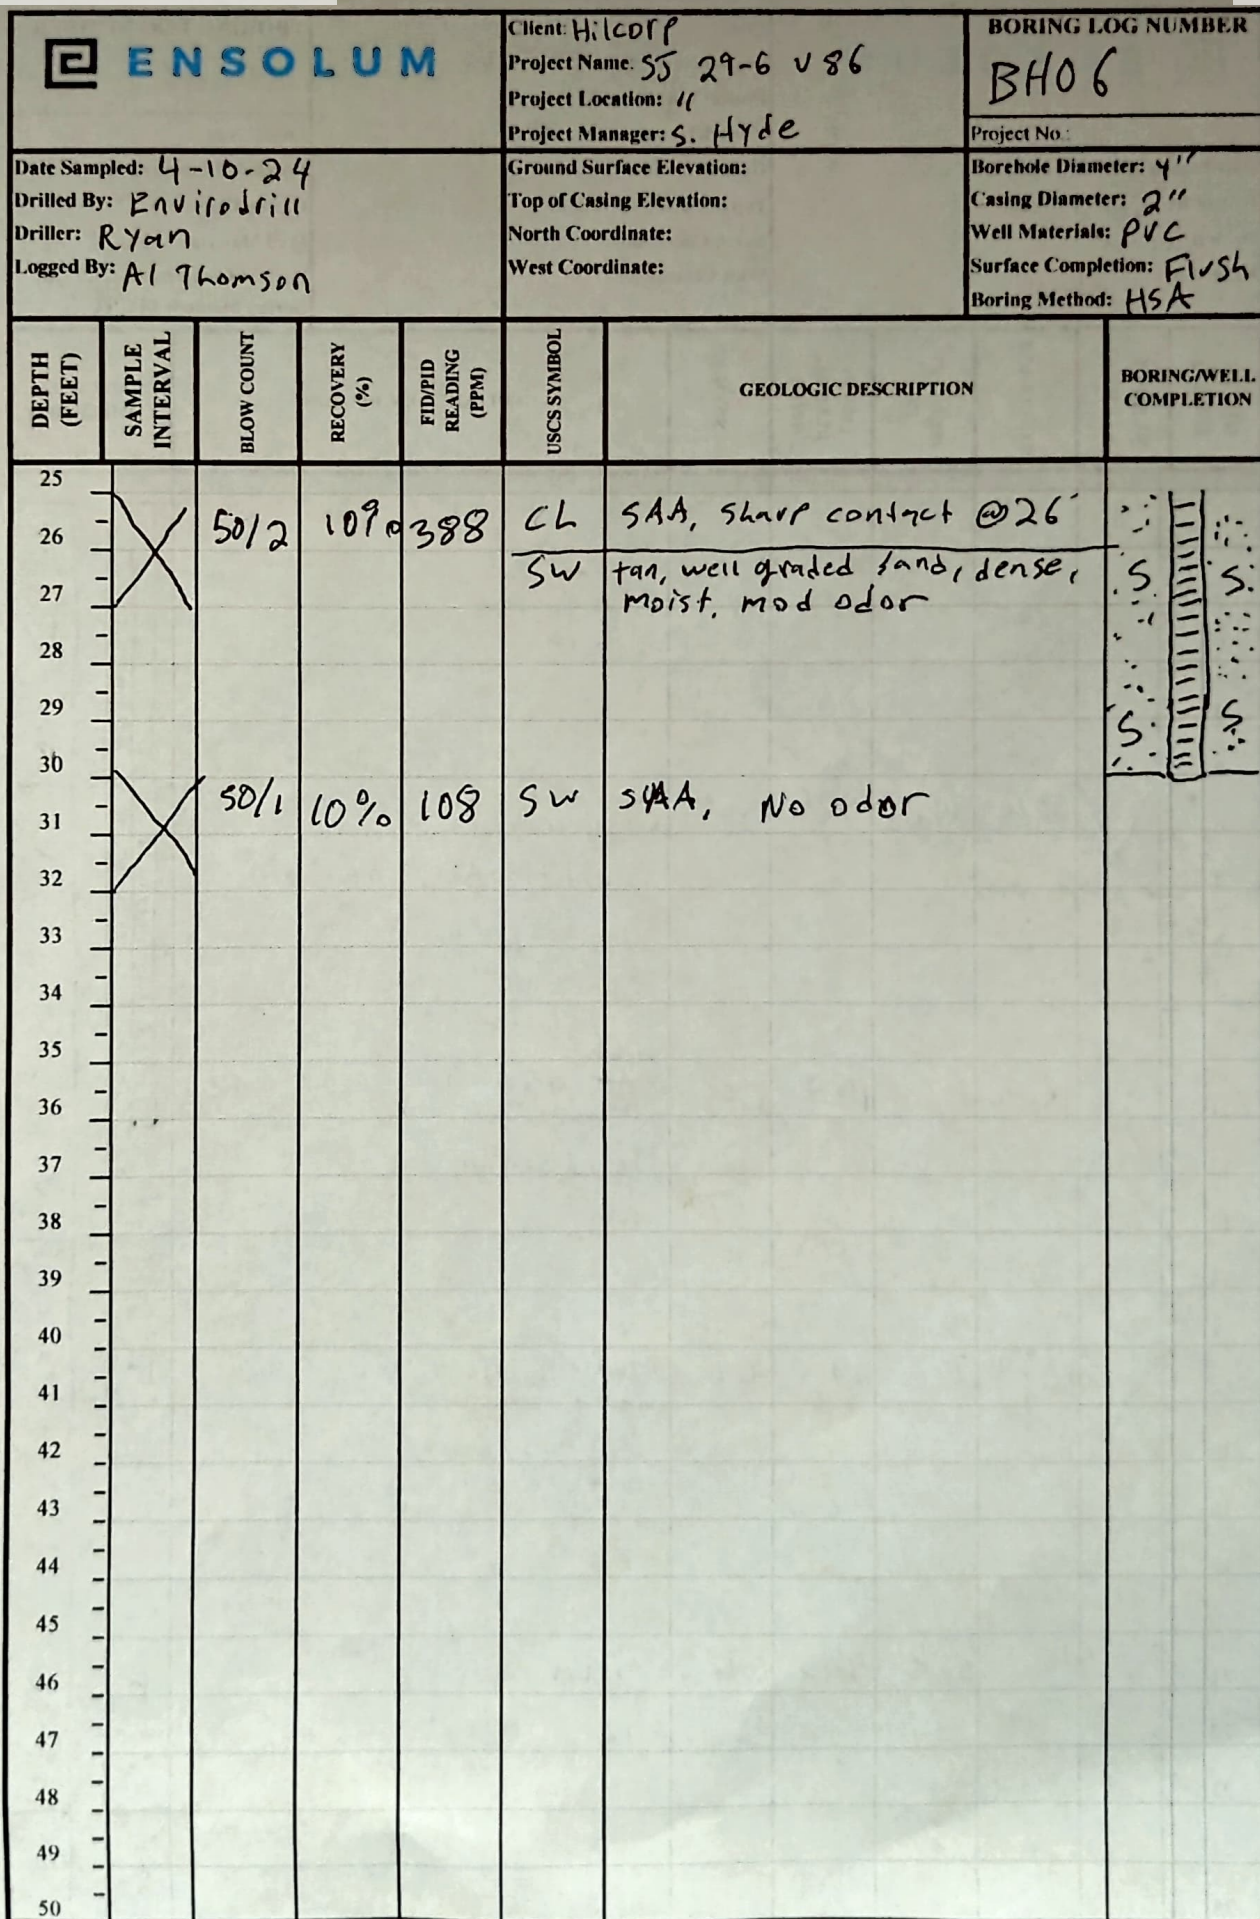 ENSOLUM
Client: Hilcorp
Project Name: SJ 29-6 U 86
Project Location: "
Project Manager: S. Hyde
BORING LOG NUMBER
BH06
Project No.:
Date Sampled: 4-10-24
Drilled By: Envirodrill
Driller: Ryan
Logged By: Al Thomson
Ground Surface Elevation:
Top of Casing Elevation:
North Coordinate:
West Coordinate:
Borehole Diameter: 4"
Casing Diameter: 2"
Well Materials: PVC
Surface Completion: Flush
Boring Method: HSA
DEPTH (FEET)
SAMPLE INTERVAL
BLOW COUNT
RECOVERY (%)
FID/PID READING (PPM)
USCS SYMBOL
GEOLOGIC DESCRIPTION
BORING/WELL COMPLETION
25
50/2 10% 388 CL SAA, Sharp contact @ 26'
26
SW tan, well graded sand, dense, S S
27 moist, mod odor
28
29
S S
30
50/1 10% 108 SW SAA, No odor
31
32
33
34
35
36
37
38
39
40
41
42
43
44
45
46
47
48
49
50